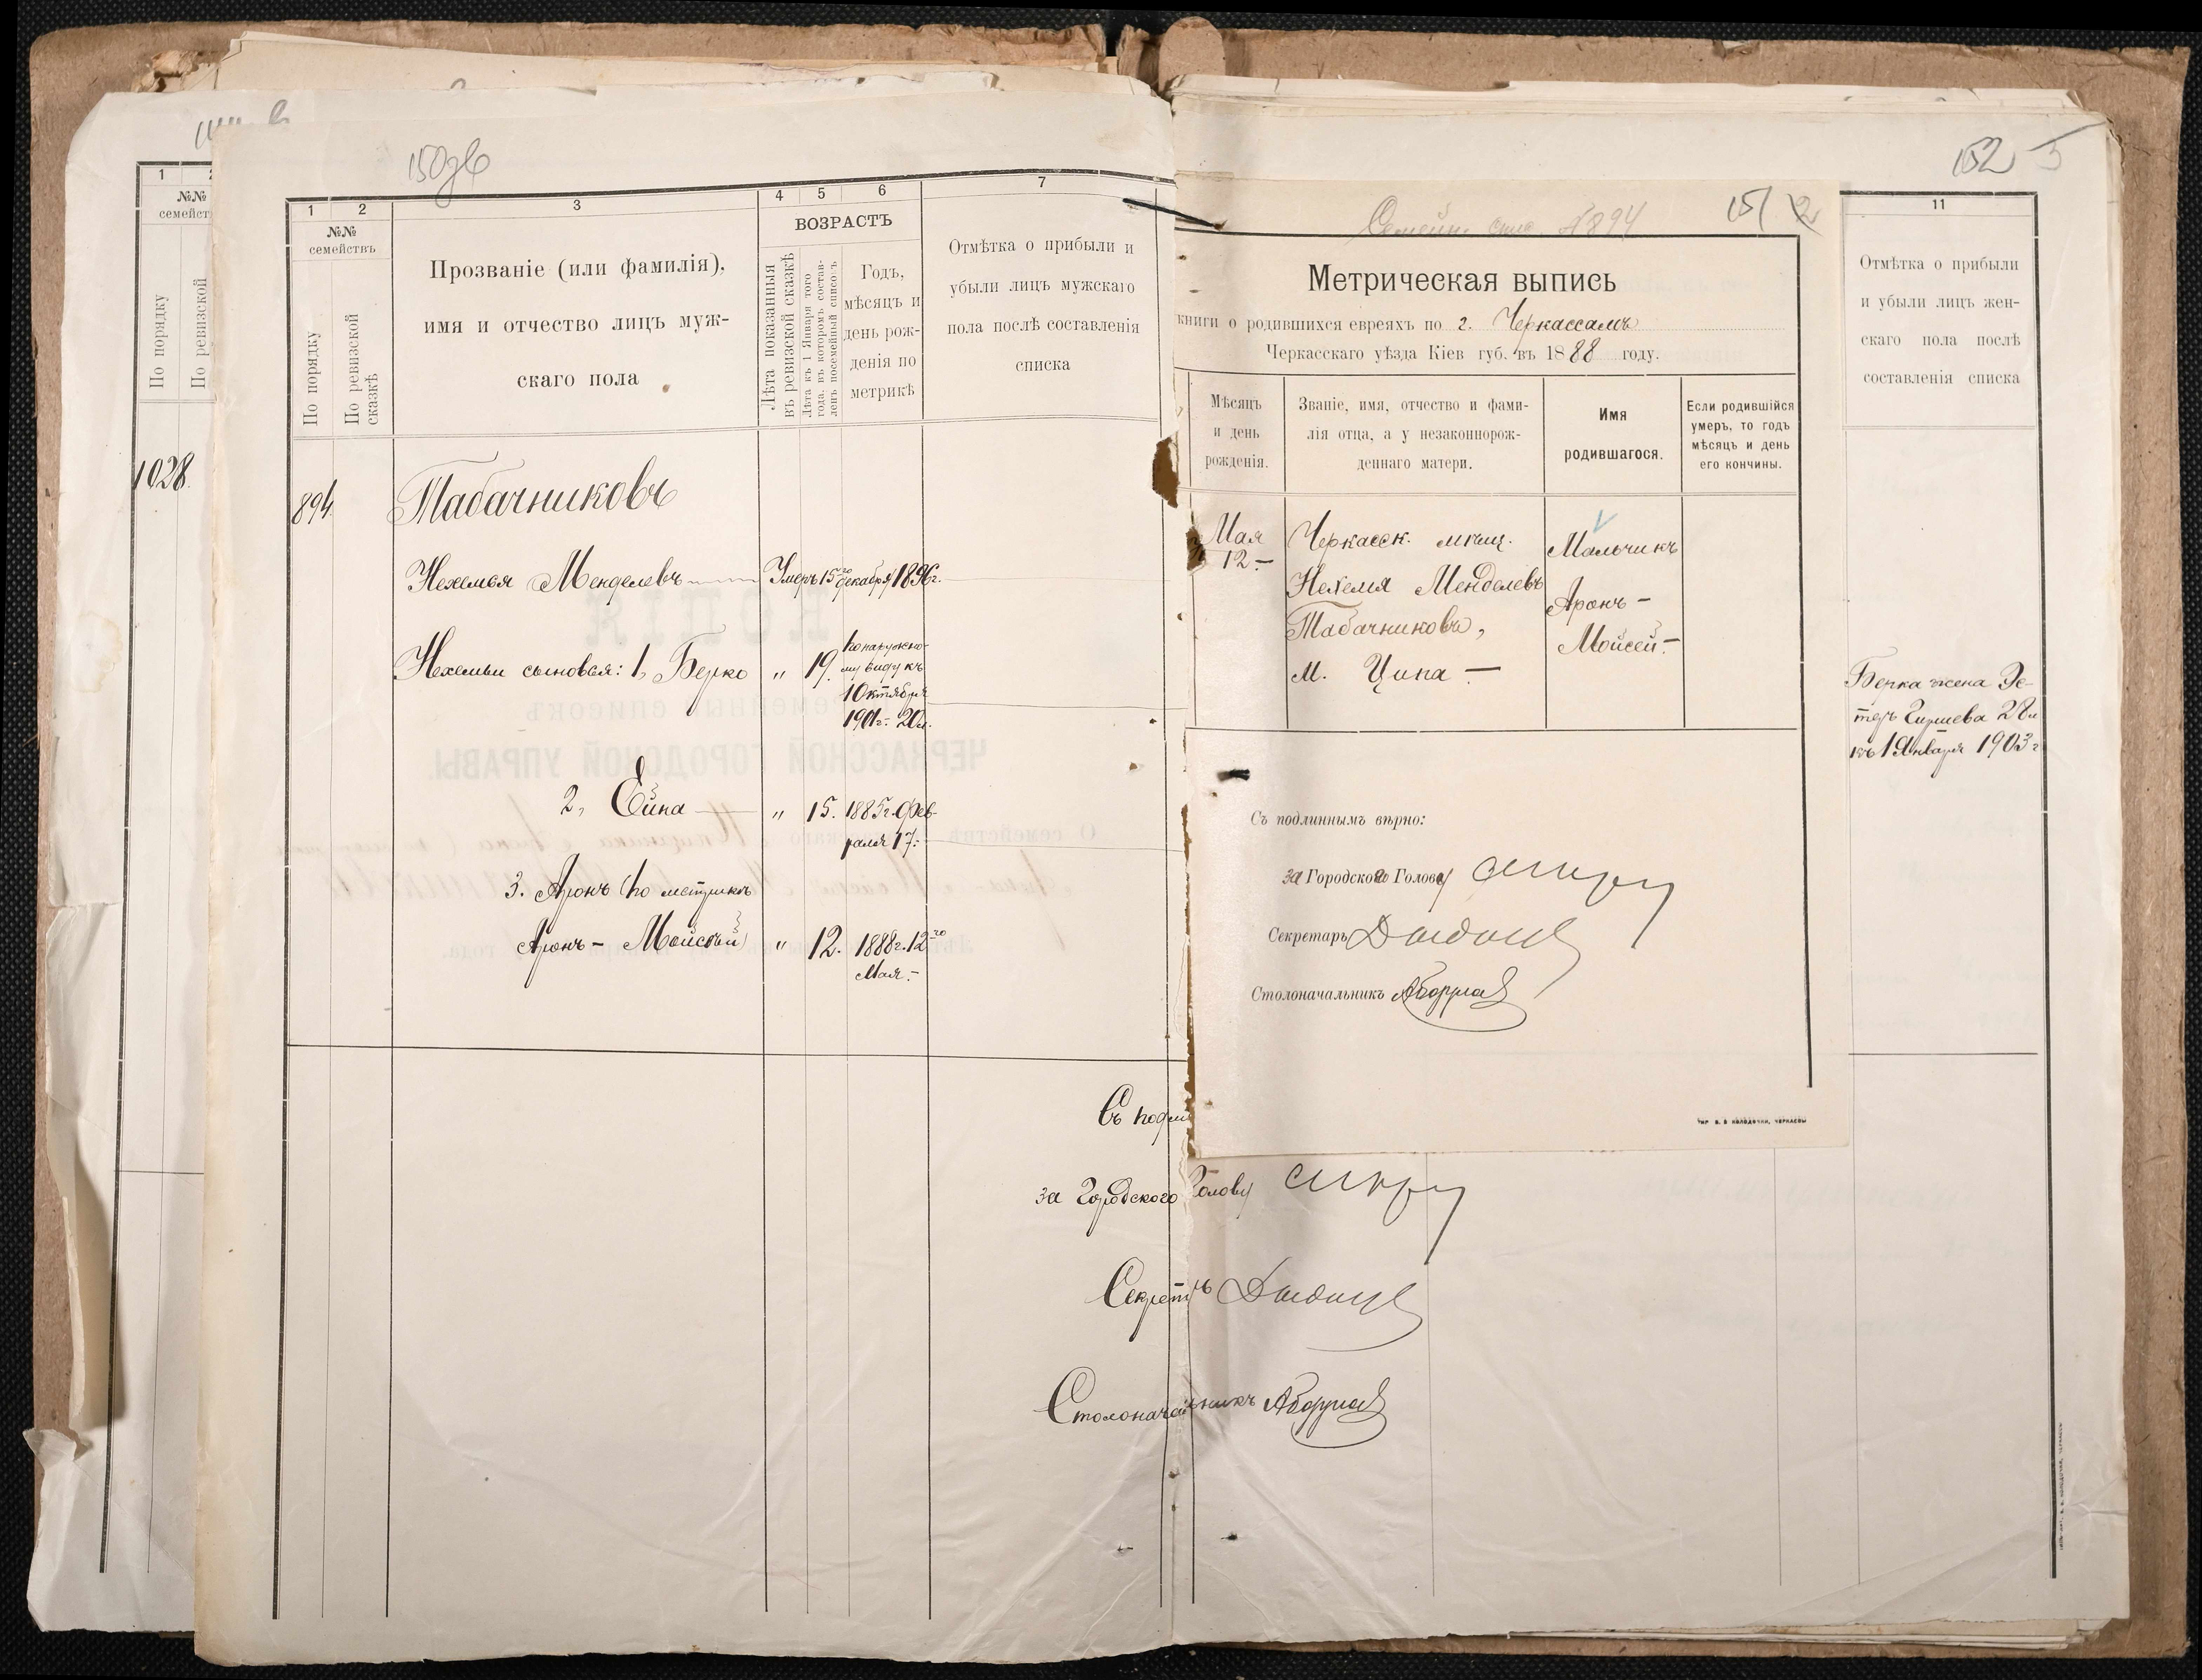 1
№№
семейст
По порядку
По ревизской
1028.
150 об
1
2
3
4
5
6
7
№№
семействъ
По порядку
По ревизской сказкѣ
Прозваніе (или фамилія),
имя и отчество лицъ муж-
скаго пола
ВОЗРАСТЪ
Лѣта показанныя
въ ревизской сказкѣ
Лѣта къ 1 Января того
года, въ которомъ состав-
ленъ посемейный списокъ
Годъ,
мѣсяцъ и
день рож-
денія по
метрикѣ
Отмѣтка о прибыли и
убыли лицъ мужскаго
пола послѣ составленія
списка
894
Табачниковъ
Нехемья Менделевъ Умеръ 15го декабря 1896г.
Нехемьи сыновья: 1, Берко " 19. по наружно-
му виду къ
1 Октября
1901г. 20л.
2, Ейна " 15. 1885г. Фев-
раля 17.
3. Аронъ (по метрикѣ
Аронъ - Мойсѣй) " 12. 1888г. 12го
Мая.-
Съ подли
за Городского Голову
Секретрь
Столоначальникъ
152
5
151
2
Семейн. спис. №894
Метрическая выпись
книги о родившихся евреяхъ по г. Черкассамъ
Черкасскаго уѣзда Кіев губ. въ 1888 году.
Мѣсяцъ
и день
рожденія.
Званіе, имя, отчество и фами-
лія отца, а у незаконнорож-
деннаго матери.
Имя
родившагося.
Если родившійся
умеръ, то годъ
мѣсяцъ и день
его кончины.
Мая
12.-
Черкасск. мѣщ.
Нехемя Менделевъ
Табачниковъ,
М. Ципа -
Мальчикъ
Аронъ -
Мойсей.-
Съ подлиннымъ вѣрно:
за Городского Голову
Секретарь
Столоначальникъ
11
Отмѣтка о прибыли
и убыли лицъ жен-
скаго пола послѣ
составленія списка
Берка жена Эс-
теръ Гиршева 28 л
къ 1 Января 1903 г